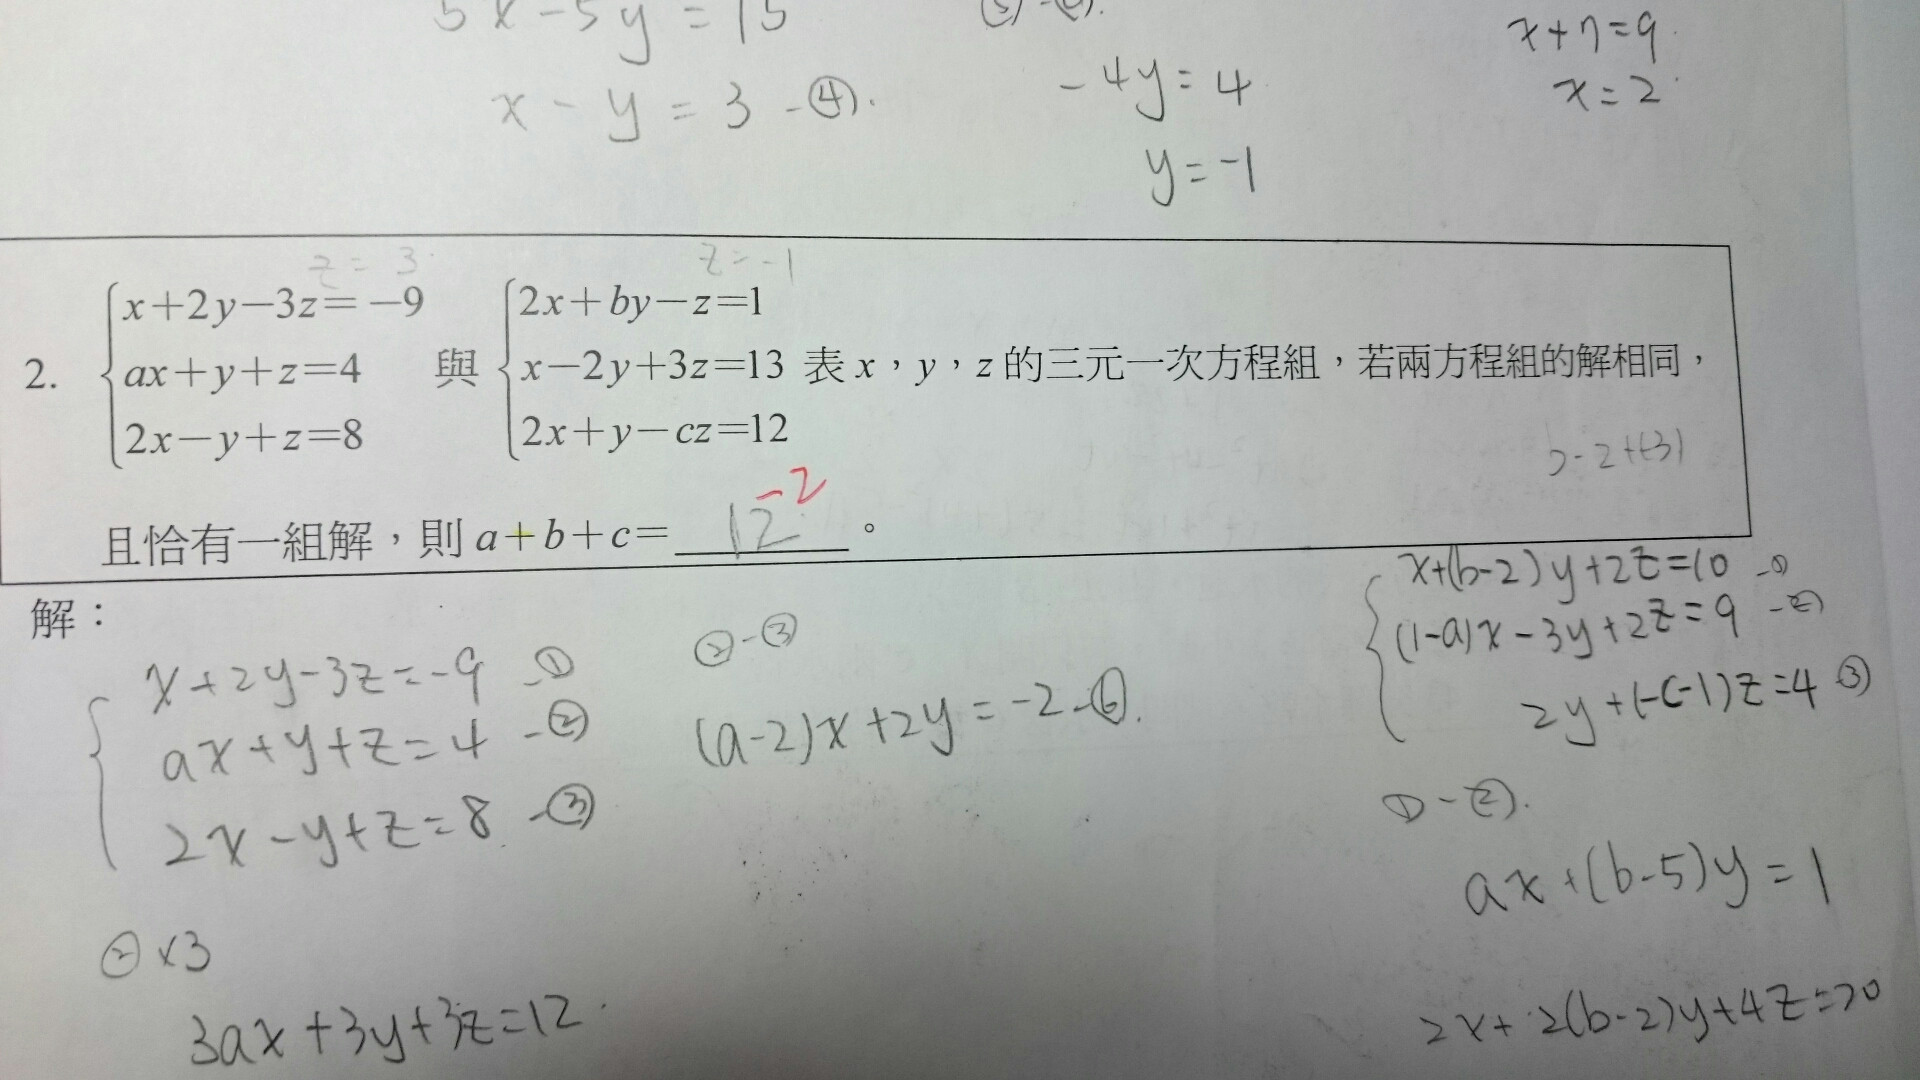 5x-5y=15
x-y=3-④.
-4y=4
y=-1
x+7=9.
x=2
z=3
z=-1
2. { x+2y-3z=-9 與 { 2x+by-z=1
ax+y+z=4 x-2y+3z=13 表 x,y,z 的三元一次方程組,若兩方程組的解相同,
2x-y+z=8 2x+y-cz=12
b-2+(-3)
-2
且恰有一組解,則 a+b+c= 12 。
解:
x+2y-3z=-9 -①
ax+y+z=4 -②
2x-y+z=8 -③
②×3
3ax+3y+3z=12.
②-③
(a-2)x+2y=-2-⑥.
x+(b-2)y+2z=10 -①
(1-a)x-3y+2z=9 -②
2y+(-c-1)z=4 ③
①-②.
ax+(b-5)y=1
2x+2(b-2)y+4z=20